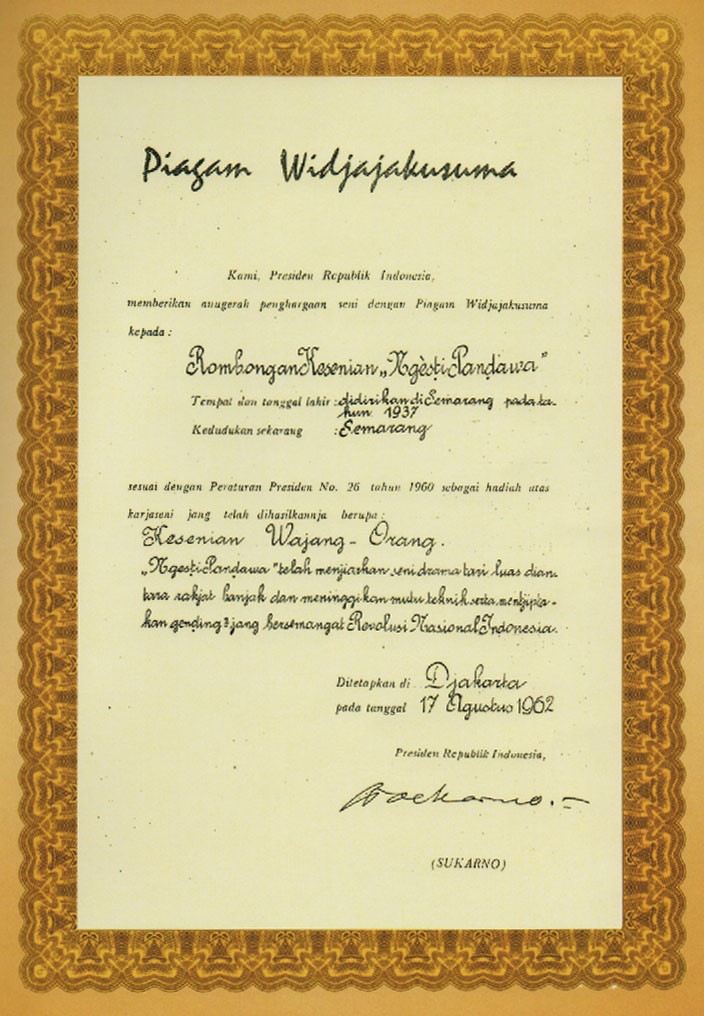 Piagam Widjajakusuma
Kami, Presiden Republik Indonesia,
memberikan anugerah penghargaan seni dengan Piagam Widjajakusuma
kepada :
Rombongan Kesenian „Ngèsti Pandawa"
Tempat dan tanggal lahir : didirikan di Semarang pada ta-
hun 1937
Kedudukan sekarang : Semarang
sesuai dengan Peraturan Presiden No. 26 tahun 1960 sebagai hadiah atas
karjaseni jang telah dihasilkannja berupa :
Kesenian Wajang - Orang.
„Ngesti Pandawa" telah menjiarkan seni drama tari luas dian-
tara rakjat banjak dan meninggikan mutu teknik serta mentjipta-
kan gending2 jang bersemangat Revolusi Nasional Indonesia.
Ditetapkan di Djakarta
pada tanggal 17 Agustus 1962
Presiden Republik Indonesia,
Soekarno
(SUKARNO)